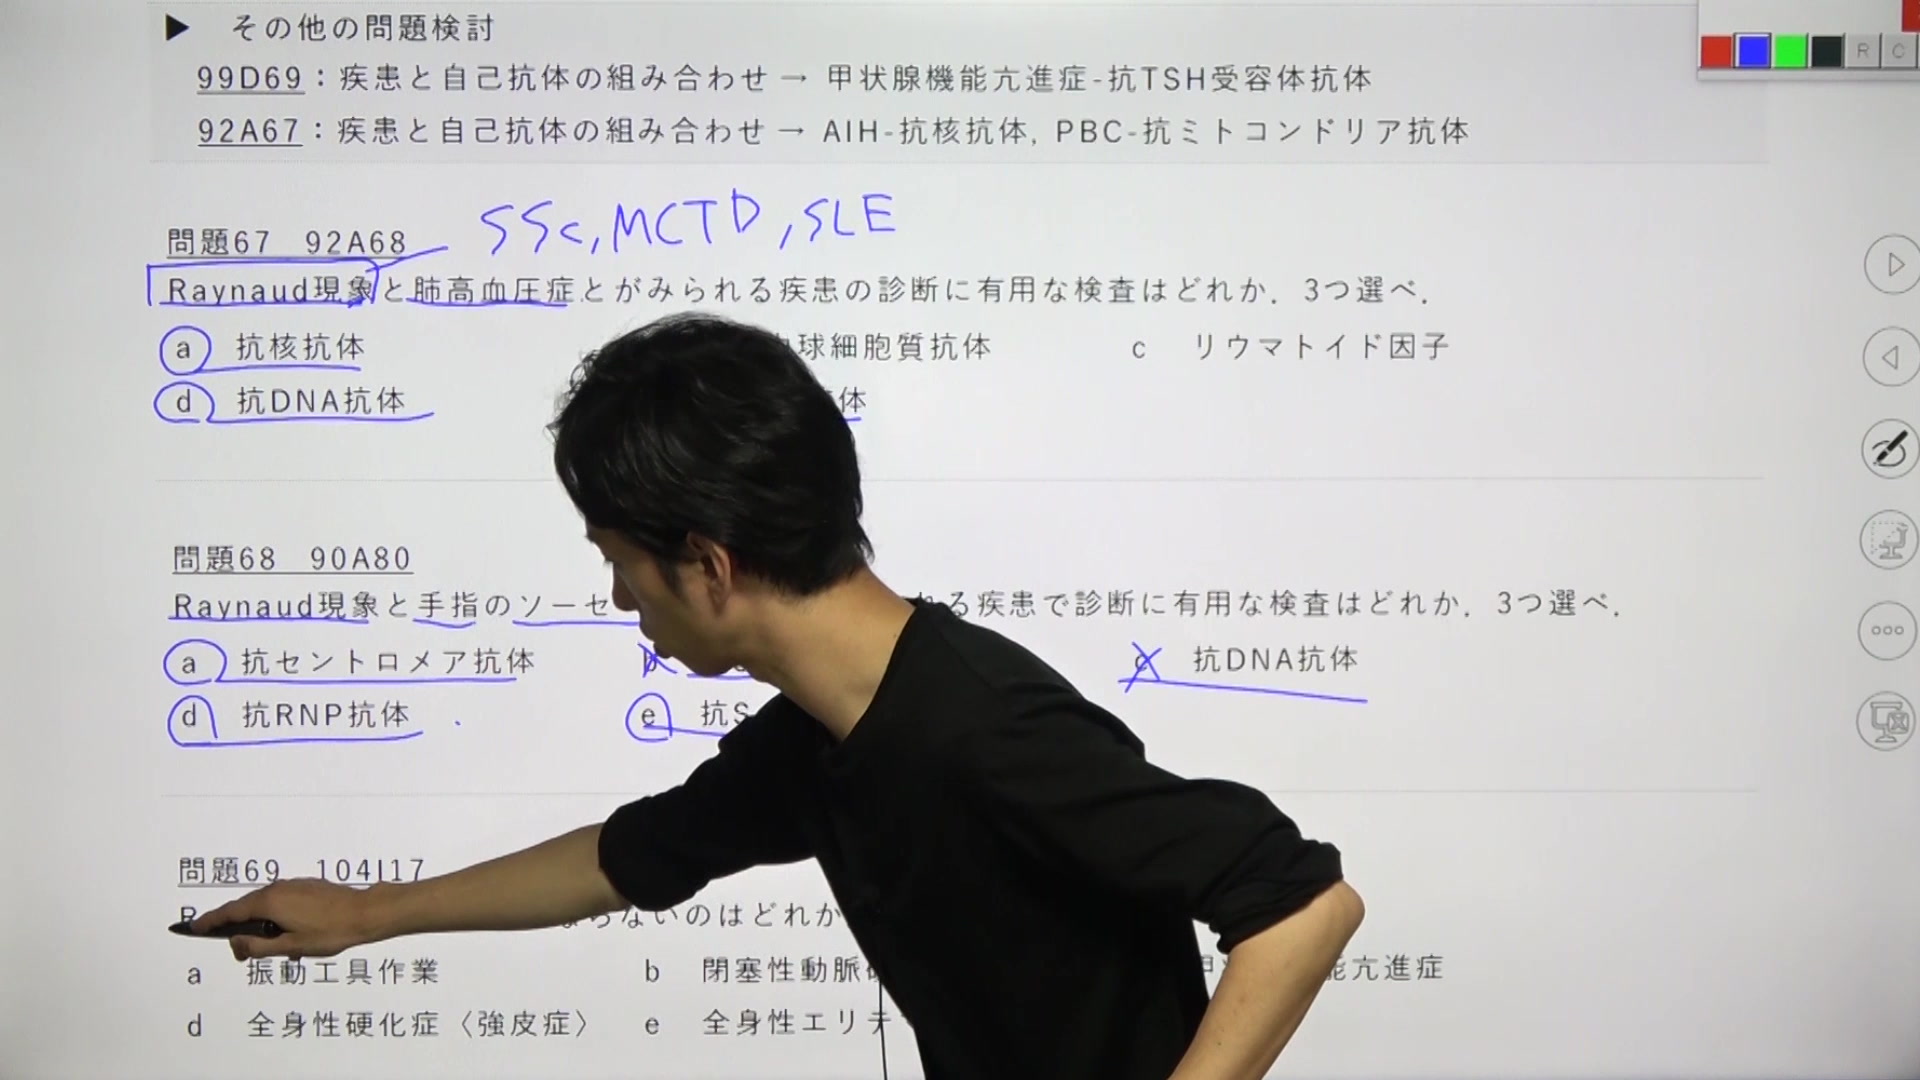 ▶ その他の問題検討
99D69：疾患と自己抗体の組み合わせ→ 甲状腺機能亢進症-抗TSH受容体抗体
92A67：疾患と自己抗体の組み合わせ→ AIH-抗核抗体, PBC-抗ミトコンドリア抗体
SSc, MCTD, SLE
問題67 92A68
Raynaud現象と肺高血圧症とがみられる疾患の診断に有用な検査はどれか．3つ選べ．
a 抗核抗体 球細胞質抗体 c リウマトイド因子
d 抗DNA抗体 体
問題68 90A80
Raynaud現象と手指のソーセ れる疾患で診断に有用な検査はどれか．3つ選べ．
a 抗セントロメア抗体 c 抗DNA抗体
d 抗RNP抗体 e 抗S
問題69 104I17
R らないのはどれか
a 振動工具作業 b 閉塞性動脈 能亢進症
d 全身性硬化症〈強皮症〉 e 全身性エリテ
R C